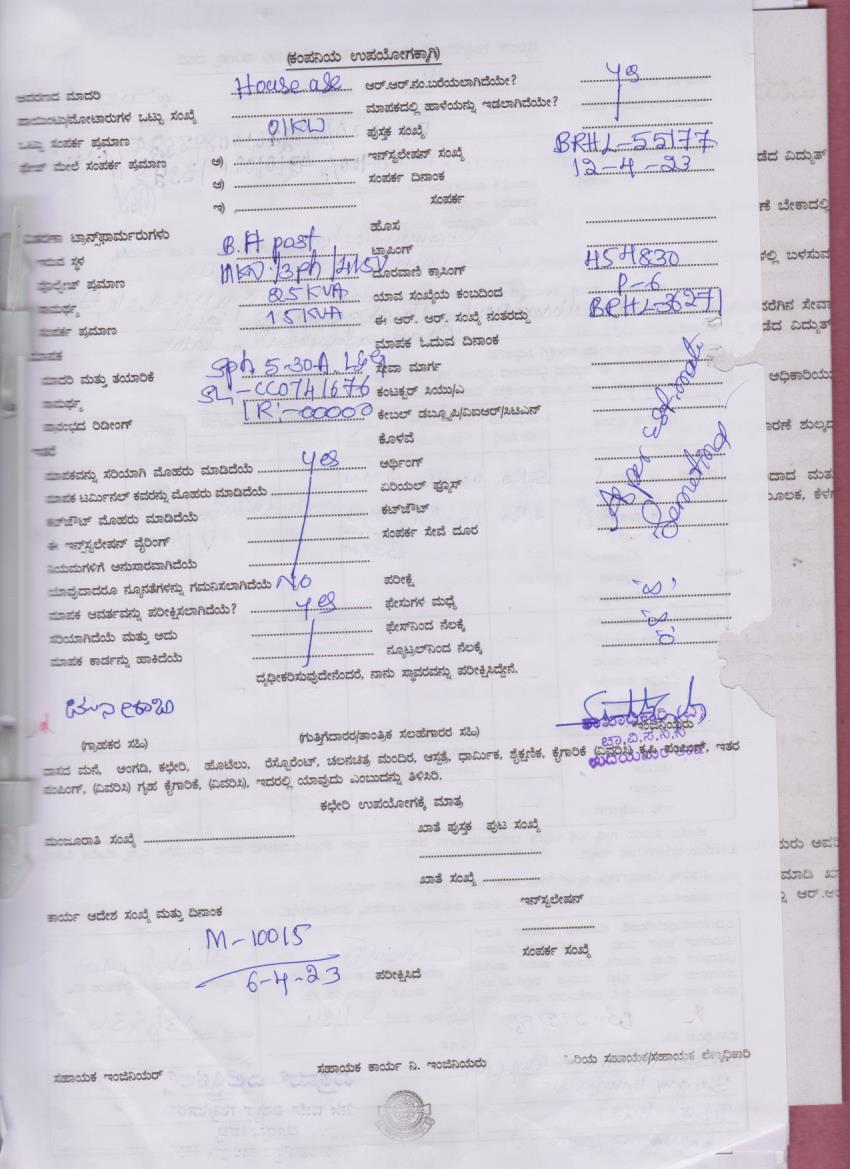 (ಕಂಪನಿಯ ಉಪಯೋಗಕ್ಕಾಗಿ)
ಆವರಣದ ಮಾದರಿ House ase ಆರ್.ಆರ್.ನಂ.ಬರೆಯಲಾಗಿದೆಯೇ? yes
ಪಾಯಿಂಟು/ಮೋಟಾರುಗಳ ಒಟ್ಟು ಸಂಖ್ಯೆ ಮಾಪಕದಲ್ಲಿ ಹಾಳೆಯನ್ನು ಇಡಲಾಗಿದೆಯೇ?
ಒಟ್ಟು ಸಂಪರ್ಕ ಪ್ರಮಾಣ 01KW ಪುಸ್ತಕ ಸಂಖ್ಯೆ
ಫೇಸ್ ಮೇಲೆ ಸಂಪರ್ಕ ಪ್ರಮಾಣ ಅ) ಇನ್‌ಸ್ಟಲೇಷನ್ ಸಂಖ್ಯೆ BRHL-55177
ಆ) ಸಂಪರ್ಕ ದಿನಾಂಕ 12-4-23
ಇ) ಸಂಪರ್ಕ
ಹೊಸ
ವಿತರಣಾ ಟ್ರಾನ್ಸ್‌ಫಾರ್ಮರುಗಳು B.H post ಟ್ಯಾಪಿಂಗ್
ಇರುವ ಸ್ಥಳ ದೂರವಾಣಿ ಕ್ರಾಸಿಂಗ್ 454830
ವೋಲ್ಟೇಜ್ ಪ್ರಮಾಣ 11KV/3ph/415V
ಸಾಮರ್ಥ್ಯ 25KVA ಯಾವ ಸಂಖ್ಯೆಯ ಕಂಬದಿಂದ P-6
ಸಂಪರ್ಕ ಪ್ರಮಾಣ 15KVA ಈ ಆರ್. ಆರ್. ಸಂಖ್ಯೆ ನಂತರದ್ದು BRHL-36271
ಮಾಪಕ ಮಾಪಕ ಓದುವ ದಿನಾಂಕ
ಮಾದರಿ ಮತ್ತು ತಯಾರಿಕೆ Sph 5-30A. L&G ಸೇವಾ ಮಾರ್ಗ
ಸಾಮರ್ಥ್ಯ SL-CC0741676 ಕಂಟಕ್ಟರ್ ಸಿಯು/ಎ
ಪ್ರಾರಂಭದ ರಿಡೀಂಗ್ IR:-00000 ಕೇಬಲ್ ಡಬ್ಲ್ಯೂಪಿ/ವಿಐಆರ್/ಸಿಟಿಎನ್
ಇತರೆ ಕೊಳವೆ
ಮಾಪಕವನ್ನು ಸರಿಯಾಗಿ ಮೊಹರು ಮಾಡಿದೆಯೆ yes ಅರ್ಥಿಂಗ್
ಮಾಪಕ ಟರ್ಮಿನಲ್ ಕವರನ್ನು ಮೊಹರು ಮಾಡಿದೆಯೆ ಏರಿಯಲ್ ಫ್ಯೂಸ್
ಕಟ್‌ಔಟ್ ಮೊಹರು ಮಾಡಿದೆಯೆ ಕಟ್‌ಔಟ್
ಈ ಇನ್‌ಸ್ಟಲೇಷನ್ ವೈರಿಂಗ್ ಸಂಪರ್ಕ ಸೇವೆ ದೂರ
ನಿಯಮಗಳಿಗೆ ಅನುಸಾರವಾಗಿದೆಯೆ
As per Estimate
ಯಾವುದಾದರೂ ನ್ಯೂನತೆಗಳನ್ನು ಗಮನಿಸಲಾಗಿದೆಯೆ NO ಪರೀಕ್ಷೆ
ಮಾಪಕ ಆವರ್ತವನ್ನು ಪರೀಕ್ಷಿಸಲಾಗಿದೆಯೆ? yes ಫೇಸುಗಳ ಮಧ್ಯೆ
ಸರಿಯಾಗಿದೆಯೆ ಮತ್ತು ಅದು ಫೇಸ್‌ನಿಂದ ನೆಲಕ್ಕೆ
ಮಾಪಕ ಕಾರ್ಡನ್ನು ಹಾಕಿದೆಯೆ ನ್ಯೂಟ್ರಲ್‌ನಿಂದ ನೆಲಕ್ಕೆ
ದೃಢೀಕರಿಸುವುದೇನೆಂದರೆ, ನಾನು ಸ್ಥಾವರವನ್ನು ಪರೀಕ್ಷಿಸಿದ್ದೇನೆ.
(ಗ್ರಾಹಕರ ಸಹಿ) (ಗುತ್ತಿಗೆದಾರರ/ತಾಂತ್ರಿಕ ಸಲಹೆಗಾರರ ಸಹಿ) ಇಂಜಿನಿಯರು
ಚಾ.ವಿ.ಸ.ನಿ.ನಿ
ವಾಸದ ಮನೆ, ಅಂಗಡಿ, ಕಛೇರಿ, ಹೊಟೆಲು, ರೆಸ್ಟೋರೆಂಟ್, ಚಲನಚಿತ್ರ ಮಂದಿರ, ಆಸ್ಪತ್ರೆ, ಧಾರ್ಮಿಕ, ಶೈಕ್ಷಣಿಕ, ಕೈಗಾರಿಕೆ (ವಿವರಿಸಿ) ಕೃಷಿ ಪಂಪಿಂಗ್, ಇತರ
ಪಂಪಿಂಗ್, (ವಿವರಿಸಿ) ಗೃಹ ಕೈಗಾರಿಕೆ, (ವಿವರಿಸಿ), ಇದರಲ್ಲಿ ಯಾವುದು ಎಂಬುದನ್ನು ತಿಳಿಸಿರಿ.
ಕಛೇರಿ ಉಪಯೋಗಕ್ಕೆ ಮಾತ್ರ
ಮಂಜೂರಾತಿ ಸಂಖ್ಯೆ ಖಾತೆ ಪುಸ್ತಕ ಪುಟ ಸಂಖ್ಯೆ
ಖಾತೆ ಸಂಖ್ಯೆ
ಕಾರ್ಯ ಆದೇಶ ಸಂಖ್ಯೆ ಮತ್ತು ದಿನಾಂಕ ಇನ್‌ಸ್ಟಲೇಷನ್
M-10015
ಸಂಪರ್ಕ ಸಂಖ್ಯೆ
6-4-23 ಪರೀಕ್ಷಿಸಿದೆ
ಸಹಾಯಕ ಇಂಜಿನಿಯರ್ ಸಹಾಯಕ ಕಾರ್ಯ ನಿ. ಇಂಜಿನಿಯರು ಹಿರಿಯ ಸಹಾಯಕ/ಸಹಾಯಕ ಲೆಕ್ಕಾಧಿಕಾರಿ